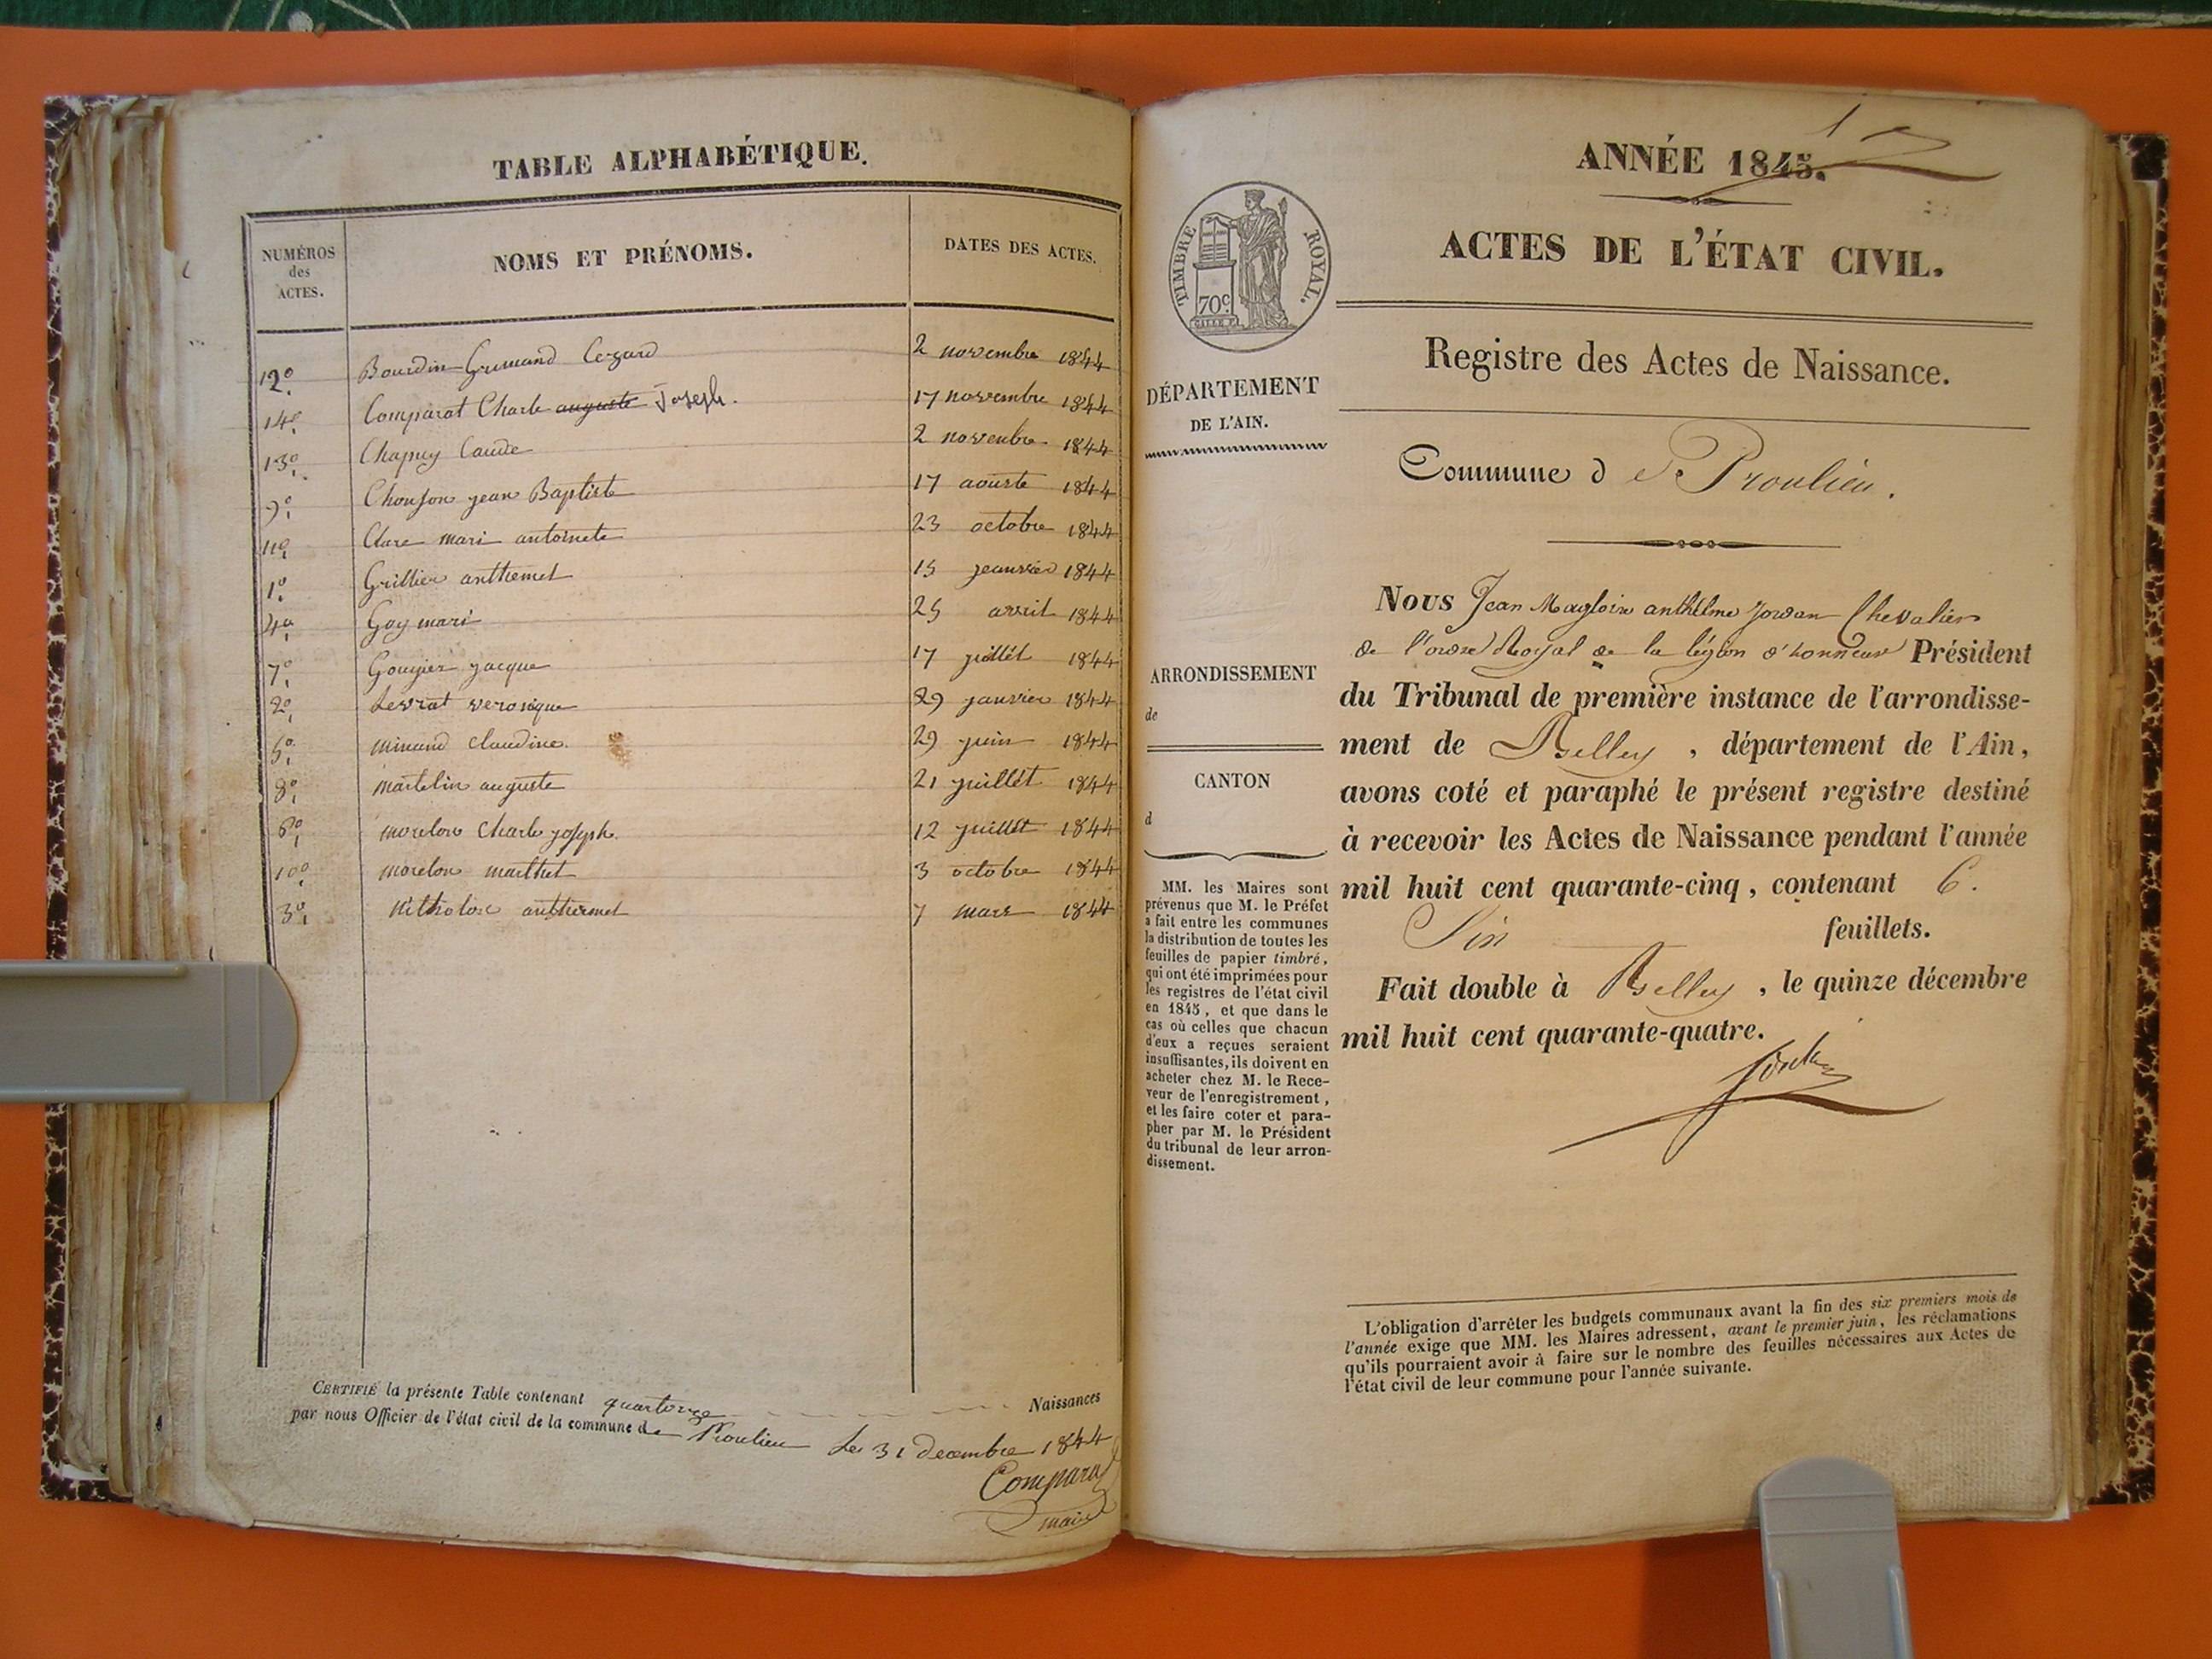 TABLE ALPHABÉTIQUE.
NUMÉROS
des
ACTES.
NOMS ET PRÉNOMS.
DATES DES ACTES.
12º Bourdin Grumand Cezard 2 novembre 1844
14º Comparat Charle auguste Joseph. 17 novembre 1844
13º Chapuy Caude 2 novenbre 1844
9º jean Baptiste 17 aouste 1844
11º Clare mari antoinete 23 octobre 1844
1º Grillier anthemet 15 jeanvier 1844
4º Goy mari 25 avril 1844
7º Goujier jacque 17 juillét 1844
2º Levrat veronique 29 janvier 1844
5º minand claudine 29 juin 1844
8º martelin auguste 21 juillét 1844
6º morelon Charle joseph 12 juillét 1844
10º morelon marthet 3 octobre 1844
3º anthermet 7 mars 1844
CERTIFIÉ la présente Table contenant quartorze Naissances
par nous Officier de l'état civil de la commune de Proulieu Le 31 Decembre 1844
Comparat
maire
1
ANNÉE 1845.
TIMBRE ROYAL.
70c.
ACTES DE L'ÉTAT CIVIL.
Registre des Actes de Naissance.
DÉPARTEMENT
DE L'AIN.
Commune de Proulieu.
ARRONDISSEMENT
de
CANTON
d
MM. les Maires sont
prévenus que M. le Préfet
a fait entre les communes
la distribution de toutes les
feuilles de papier timbré,
qui ont été imprimées pour
les registres de l'état civil
en 1845, et que dans le
cas où celles que chacun
d'eux a reçues seraient
insuffisantes, ils doivent en
acheter chez M. le Rece-
veur de l'enregistrement,
et les faire coter et para-
pher par M. le Président
du tribunal de leur arron-
dissement.
Nous Jean Magloire anthelme Jordan Chevalier
de l'ordre Royal de la légion d'honneur Président
du Tribunal de première instance de l'arrondisse-
ment de Belley, département de l'Ain,
avons coté et paraphé le présent registre destiné
à recevoir les Actes de Naissance pendant l'année
mil huit cent quarante-cinq, contenant 6.
Six feuillets.
Fait double à Belley, le quinze décembre
mil huit cent quarante-quatre.
L'obligation d'arrêter les budgets communaux avant la fin des six premiers mois de
l'année exige que MM. les Maires adressent, avant le premier juin, les réclamations
qu'ils pourraient avoir à faire sur le nombre des feuilles nécessaires aux Actes de
l'état civil de leur commune pour l'année suivante.